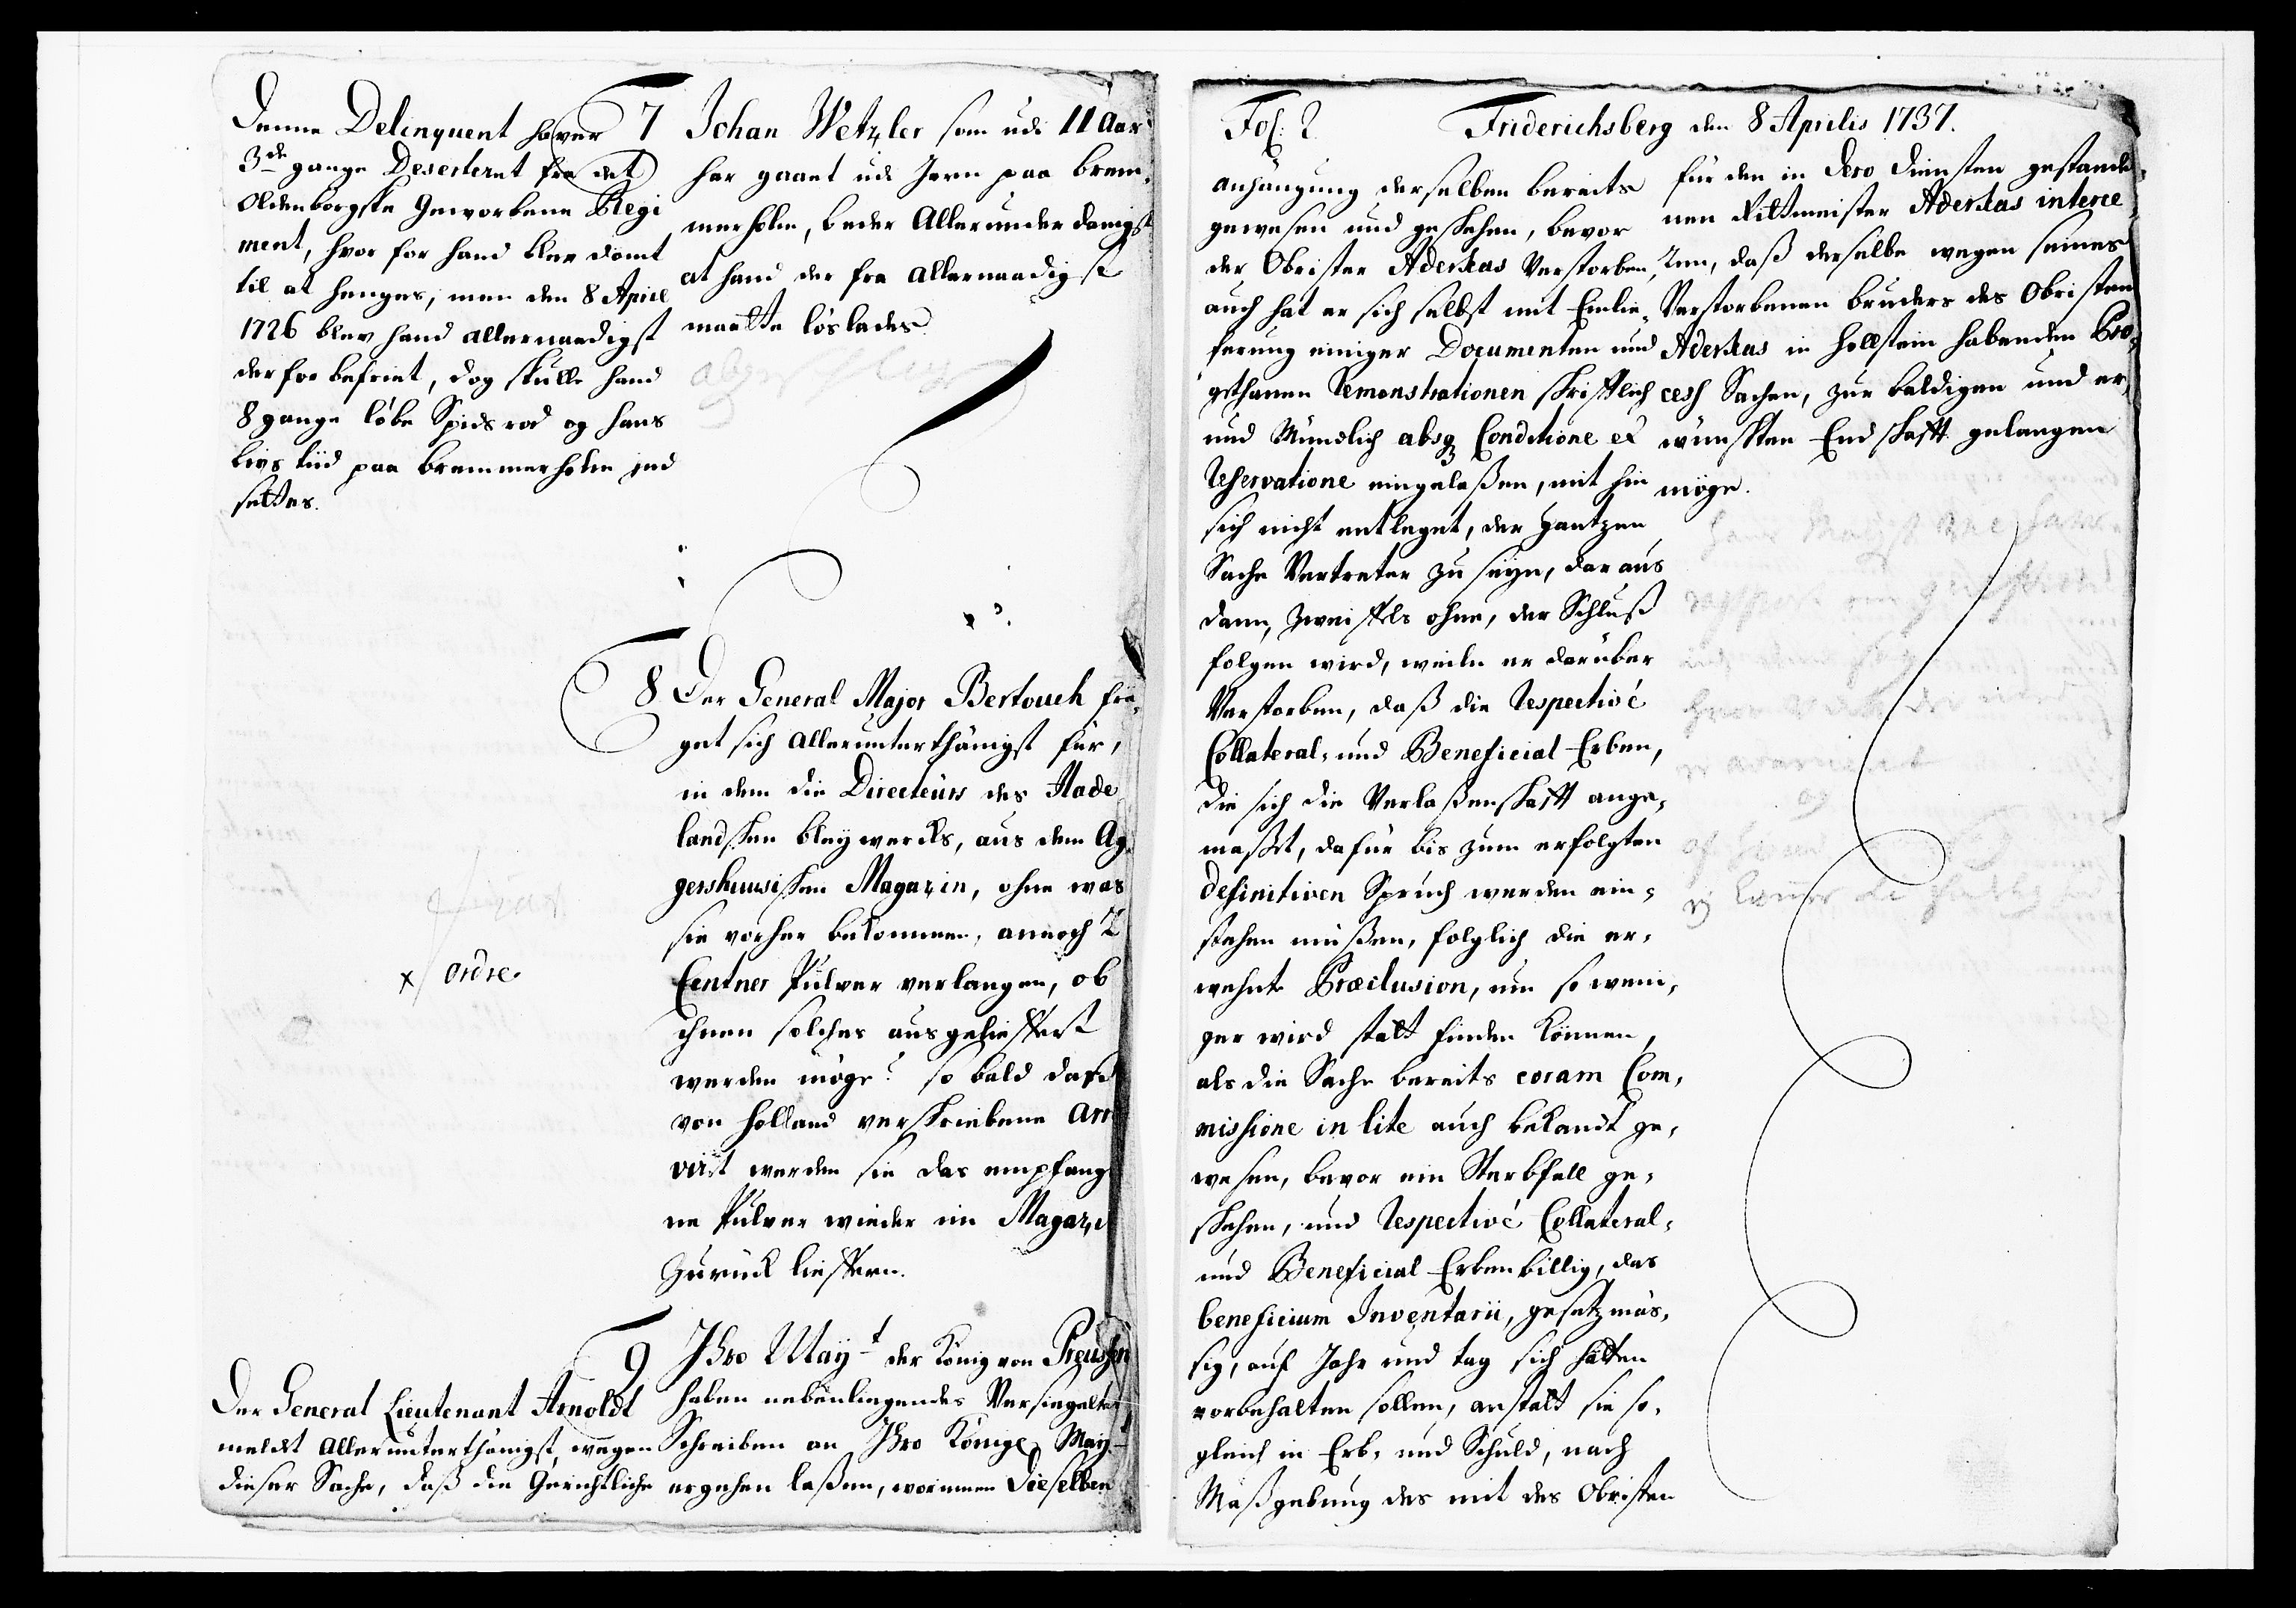 Denne Delinquent haver
3de gange Deserteret fra det
Oldenborgske Geworbene Regi
ment, hvor for hand blev dömt
til at henges, men den 8 April
1726 blev hand allernaadigst
derfor befriet, dog skulle hand
8 gange löbe Spidsrod og hans
livs tiid paa bremmerholm ind
settes.
7 Johan Wetzler som udi 11 Aar
har gaaet udi Jern paa brem-
merholm, beder Allerunderdanigst
at hand der fra allernaadigst
maatte löslades.
8 Der General Major Bertouch frä-
get sich allerunterthänigst für,
in dem die Directeürs des Hade
landschen bleywercks, aus dem Ag-
gershuusischen Magazin, ohne was
sie vorher bekommen, annoch 2
Centner Pulver verlangen, ob
ihnen solches ausgelieffert
werden möge? so bald das
von Holland verschriebene arri
virt werden sie das empfange
ne Pulver wieder im Magazin
Zurück lieffern.
x ordre.
9 Ihro Mayt der König von Preussen
haben nebenliegendes Versiegeltes
Schreiben an Ihro Königl. Mayt
ergehen laßen, worinnen Dieselben
Der General Lieutenant Arnoldt
meldet allerunterthänigst, wegen
dieser Sache, daß die Gerichtliche
Fol: 2
Friderichsberg den 8 Aprilis 1737.
anhängung derselben bereits
gewesen und geschehen, bevor
der Obrister Aderkas Verstorben,
auch hat er sich selbst mit Einlie-
ferung einiger Documenten und
gethanen Remonstrationen schrifftlich
und Mündlich absq Conditione et
Reservatione eingelaßen, mit hin
sich nicht entleget, der gantzen
Sache Vertreter zu seyn, dar aus
dann, zweiffels ohne, der Schluß
folgen wird, weiln er darüber
Verstorben, daß die Respectivé
Collateral- und Beneficial-Erben,
die sich die Verlaßenschafft ange-
maßet, dafür bis zum erfolgten
definitiven Spruch werden ein-
stehen müßen, folglich die er-
wehnte Præclusion, um so weni-
ger wird statt finden können,
als die Sache bereits coram Com-
missione in lite auch bekandt ge-
wesen, bevor ein Sterbfall ge-
schehen, und Respectivé Collateral-
und Beneficial-Erben billig, das
beneficium Inventarii, gesetzmäs-
sig, auf Jahr und tag sich hätten
vorbehalten sollen, anstatt sie so-
gleich in Erb- und Schuld, nach
Maßgebung des mit des Obristen
für den in dero diensten gestande-
nen Rittmeister Aderkas interce
diren, daß derselbe wegen seines
Verstorbenen bruders des Obristen
Aderkas in Hollstein habenden Pro-
cess Sachen, zur baldigen und er-
wünschten Endschafft gelangen
möge.